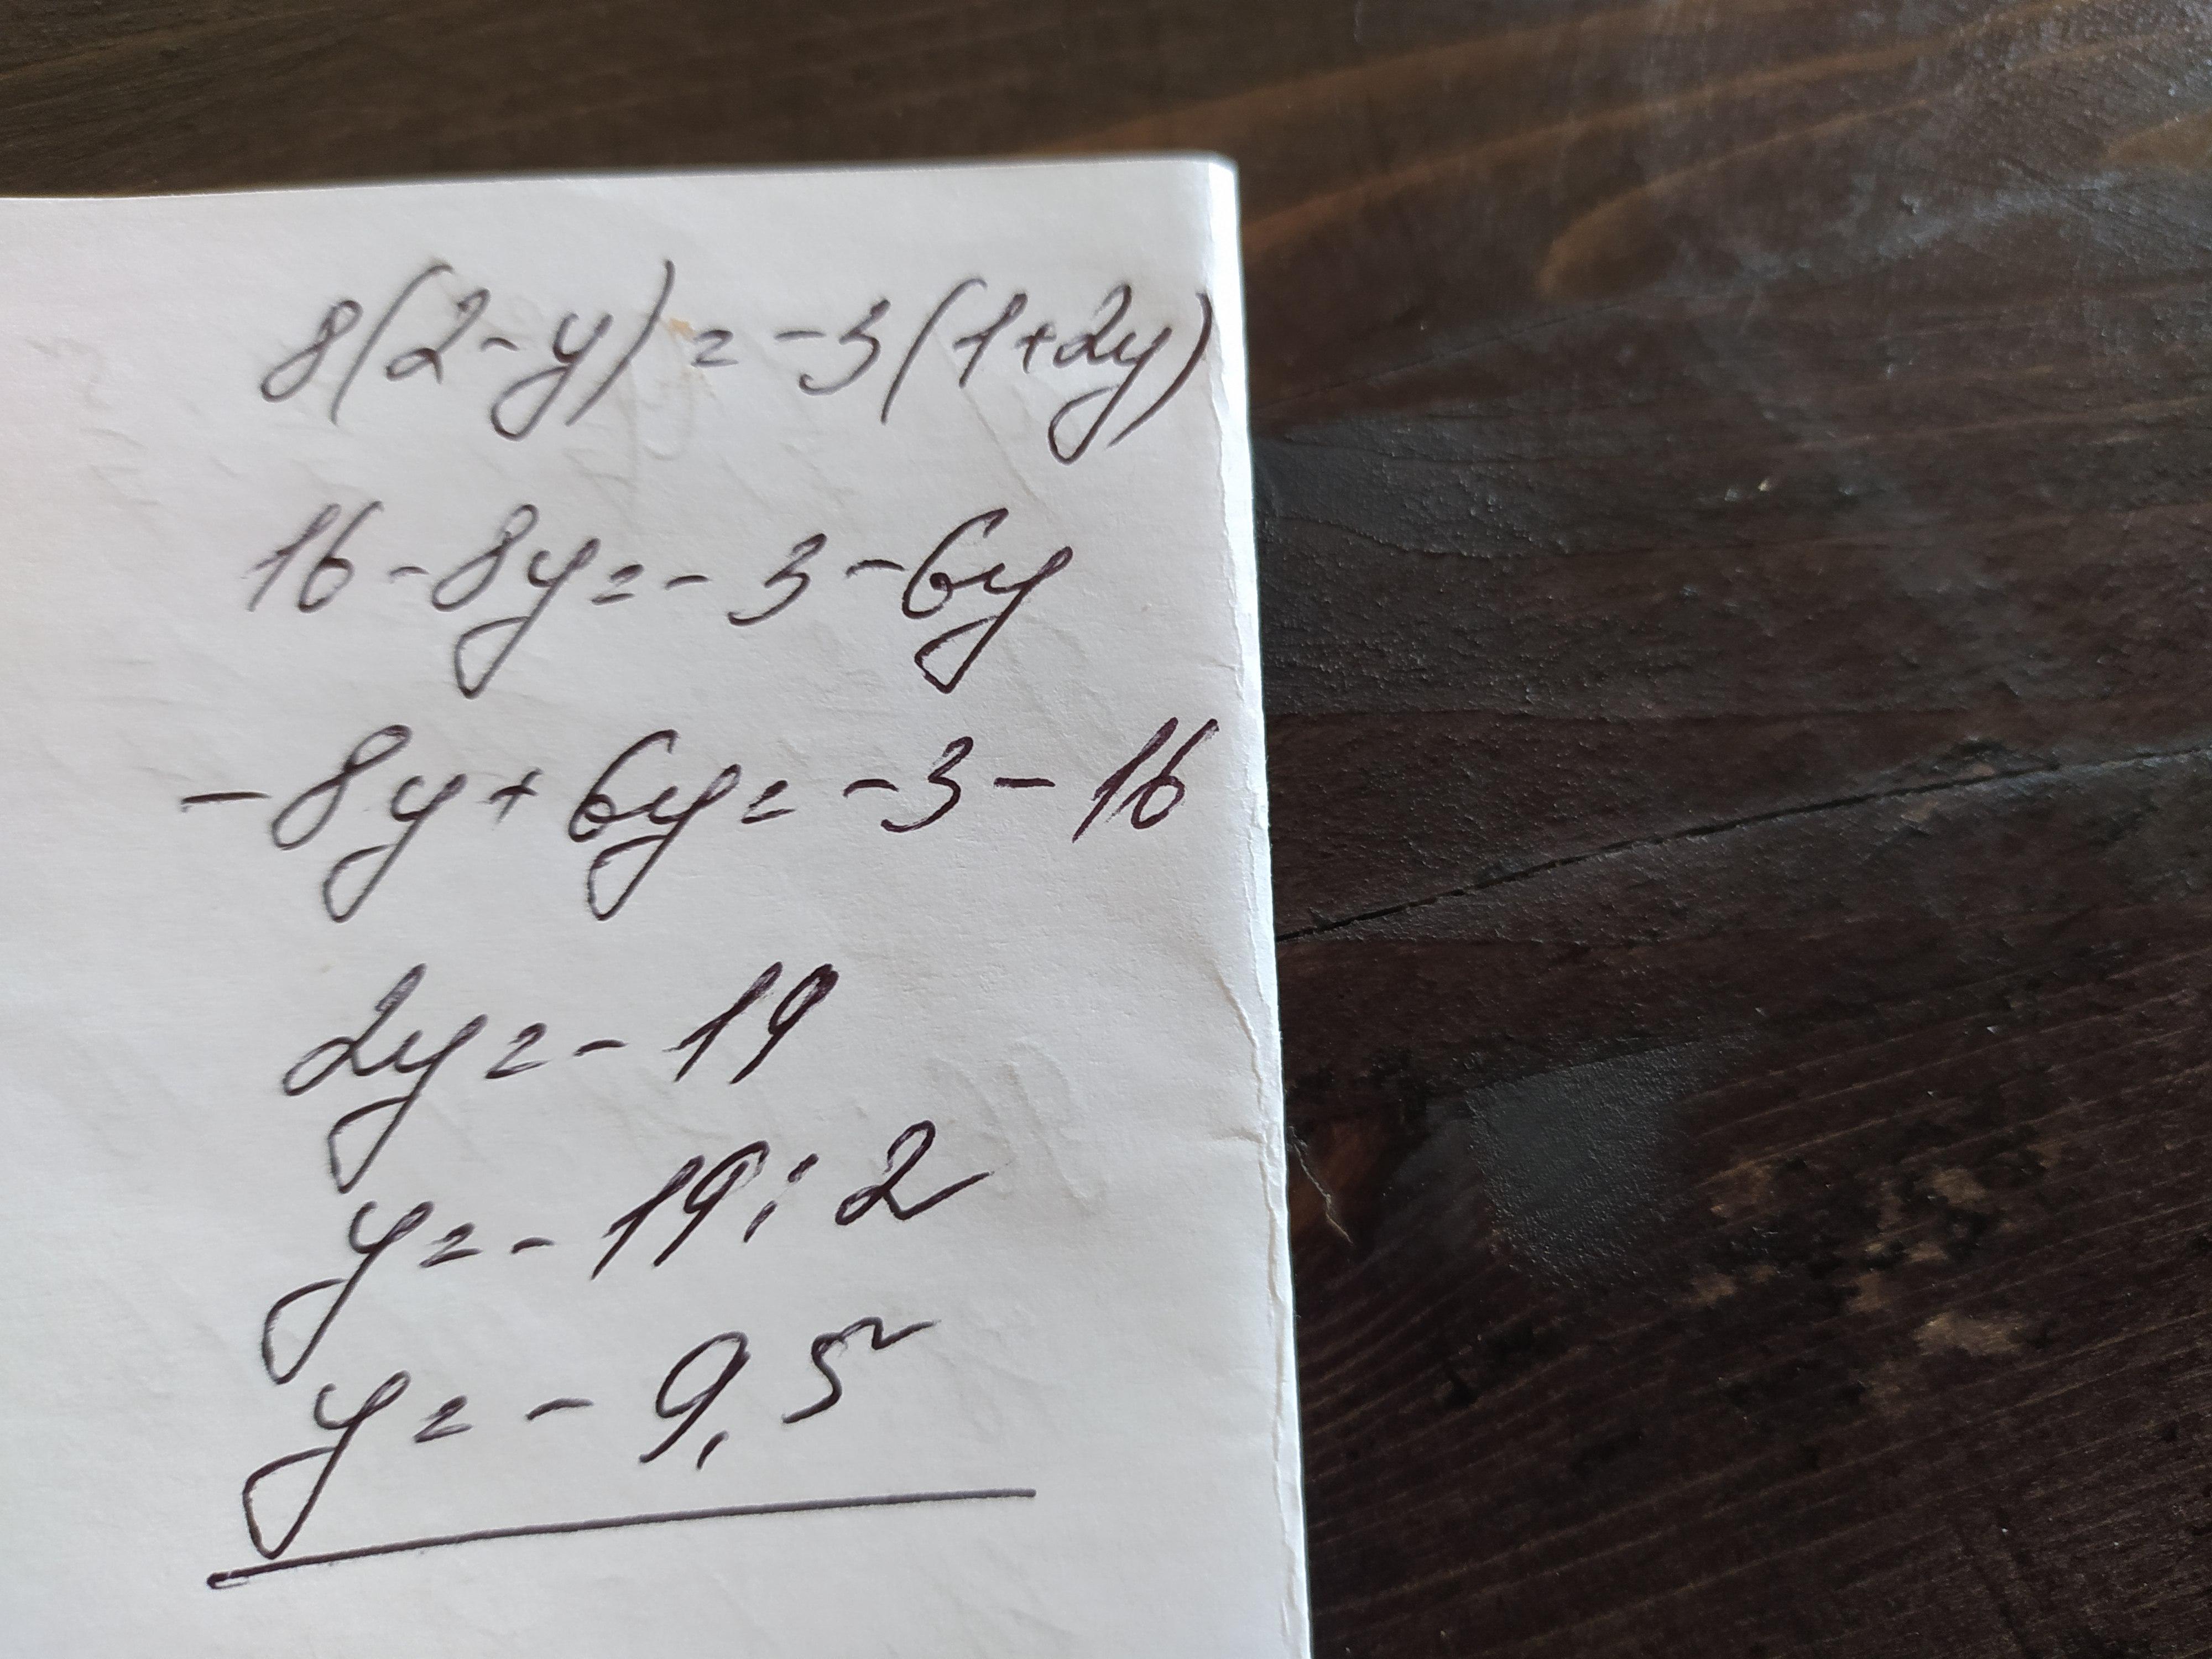 8(2-y)=-3(1+2y)
16-8y=-3-6y
-8y+6y=-3-16
2y=-19
y=-19:2
y=-9,5